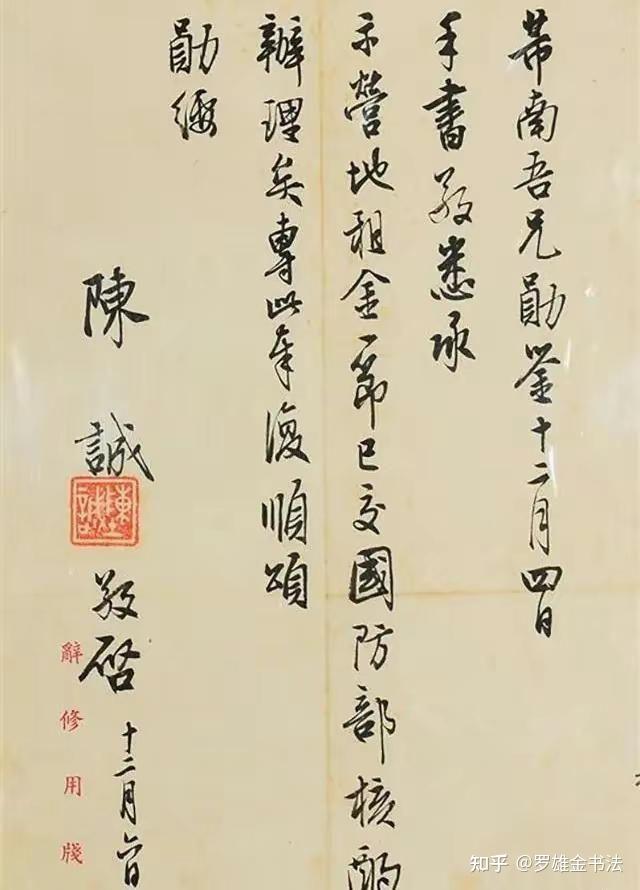 芾南吾兄勛鑒十二月四日
手書敬悉承
示營地租金一節已交國防部核酌
辦理矣專此奉復順頌
勛綏
陳誠
陳誠
敬啓
十二月六日
辭修用牋
知乎 @罗雄金书法